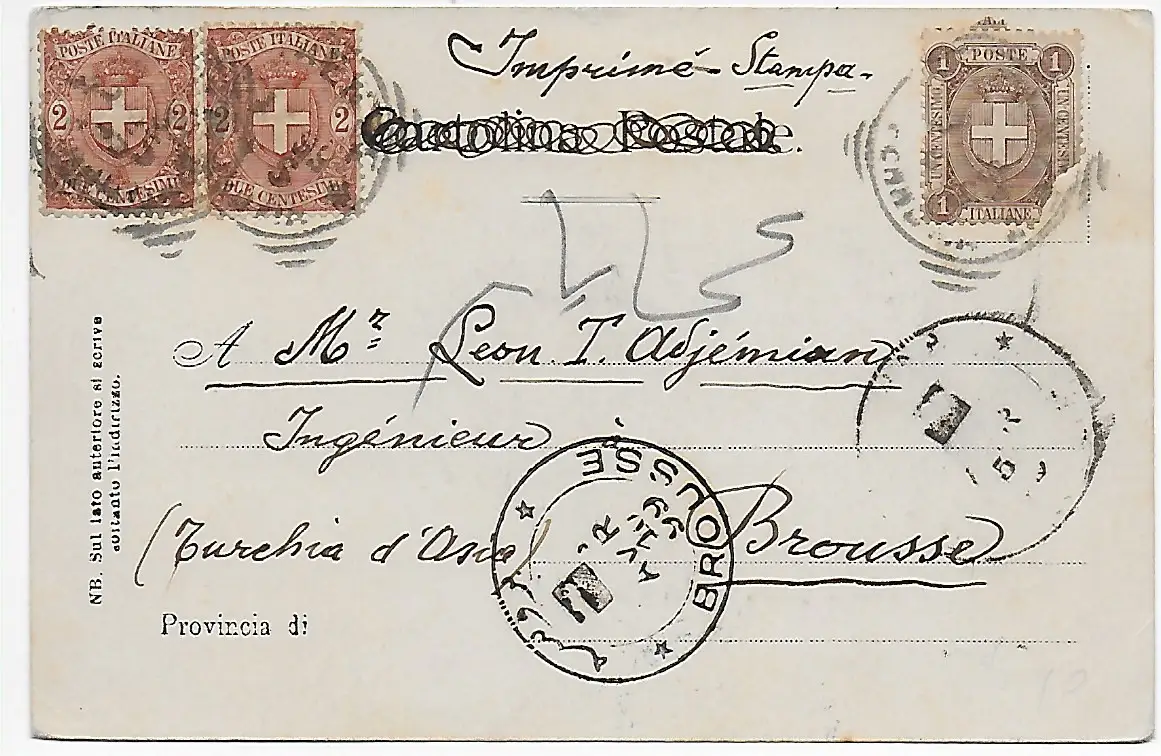 POSTE ITALIANE
2 2
DUE CENTESIMI
POSTE ITALIANE
2 2
DUE CENTESIMI
1 POSTE 1
UN CENTESIMO
UN CENTESIMO
1 ITALIANE
Imprimé - Stampa -
Cartolina Postale.
A Mr Leon T. Adjémian
Ingénieur à
Brousse
(Turchia d'Asia)
Provincia di
NB. Sul lato anteriore si scrive
soltanto l'indirizzo.
BROUSSE